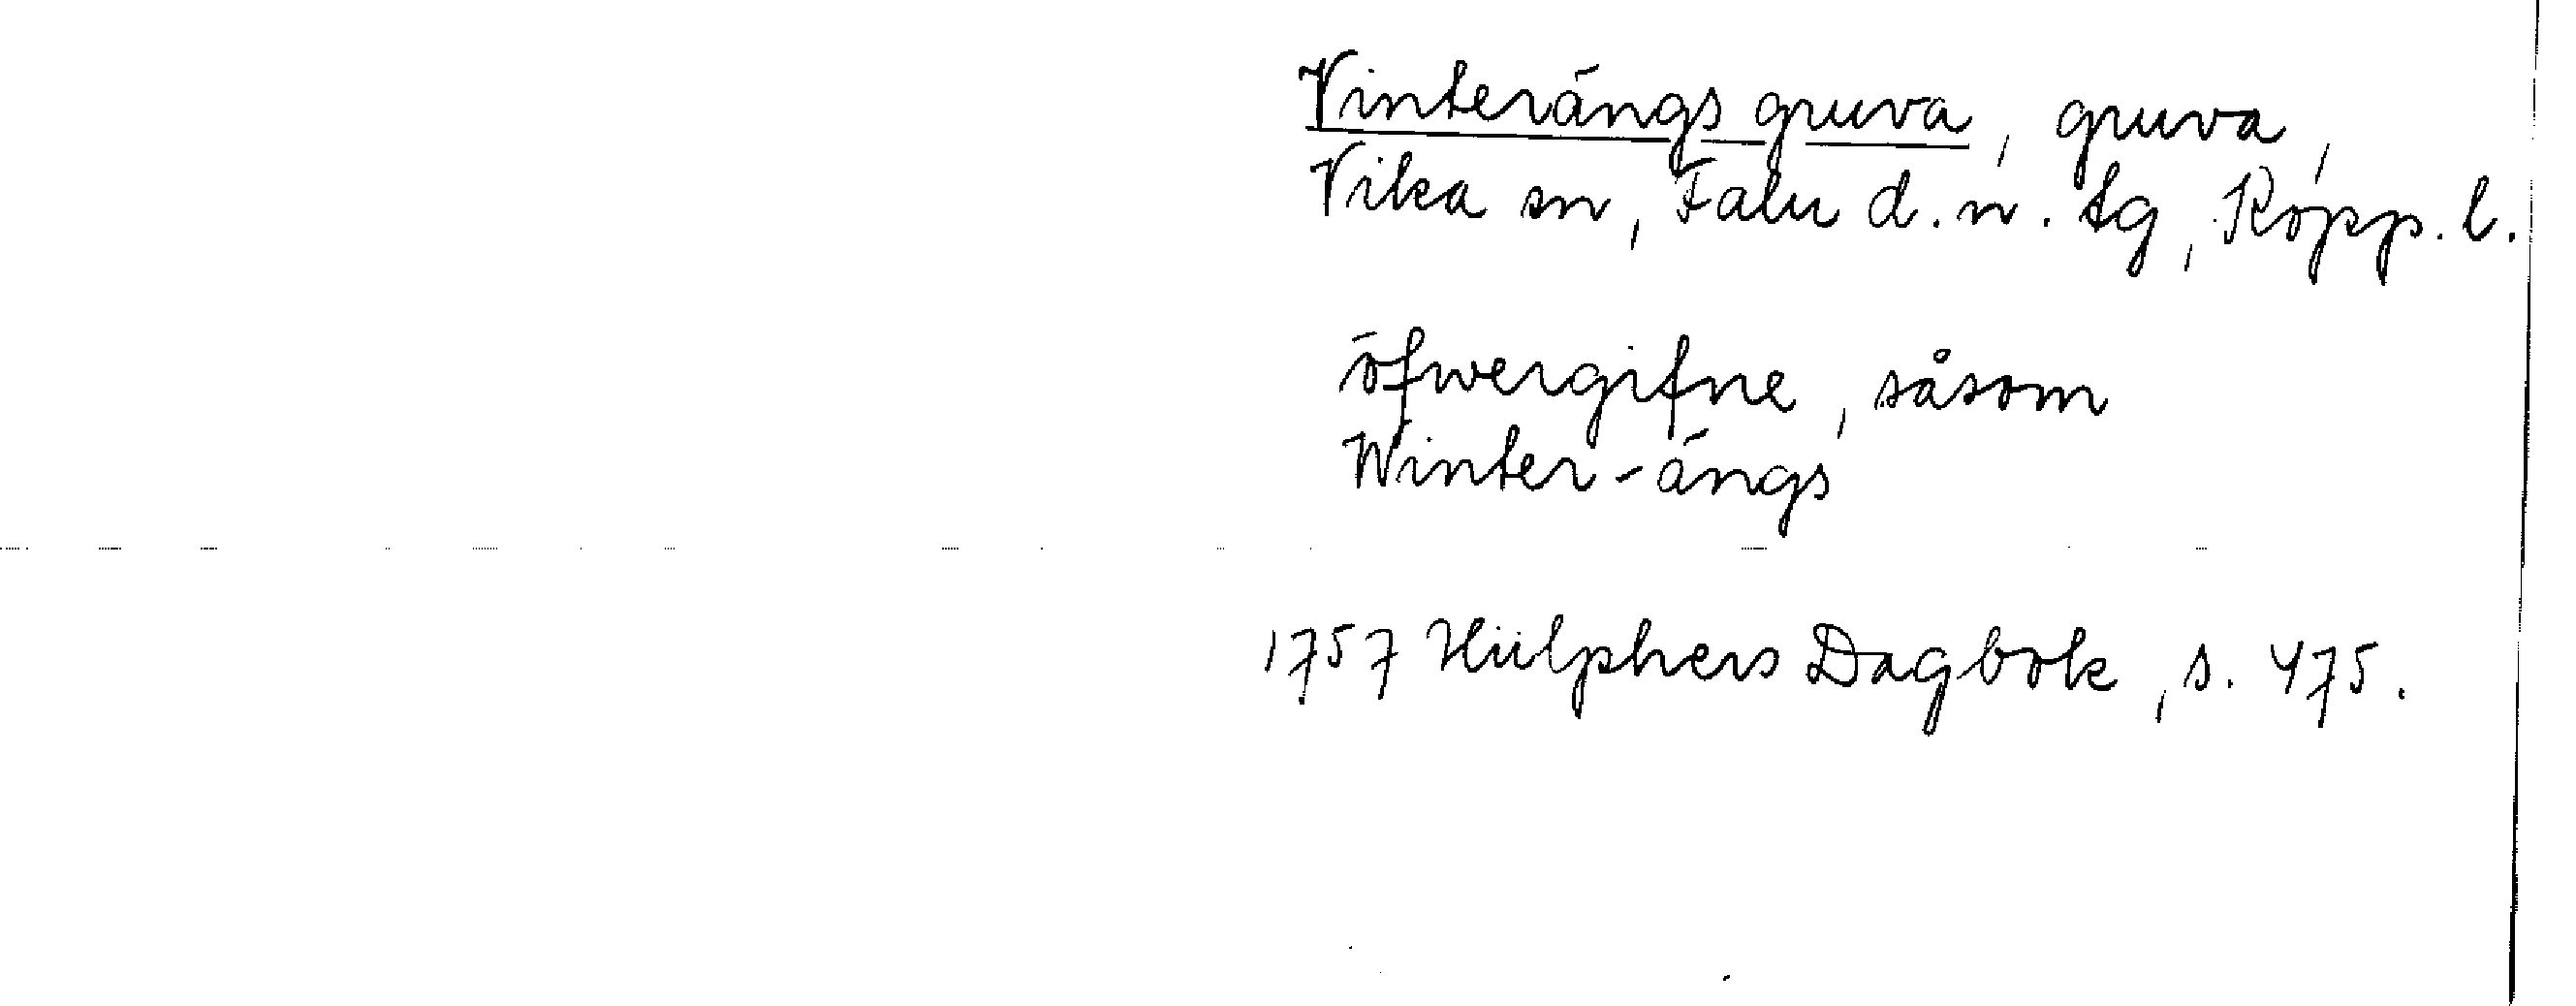 Vinterängs gruva, gruva,
Vika sn, Falu d.n. tg, Kopp. l.
öfwergifne, såsom
Winter-ängs
1757 Hülphers Dagbok, s. 475.